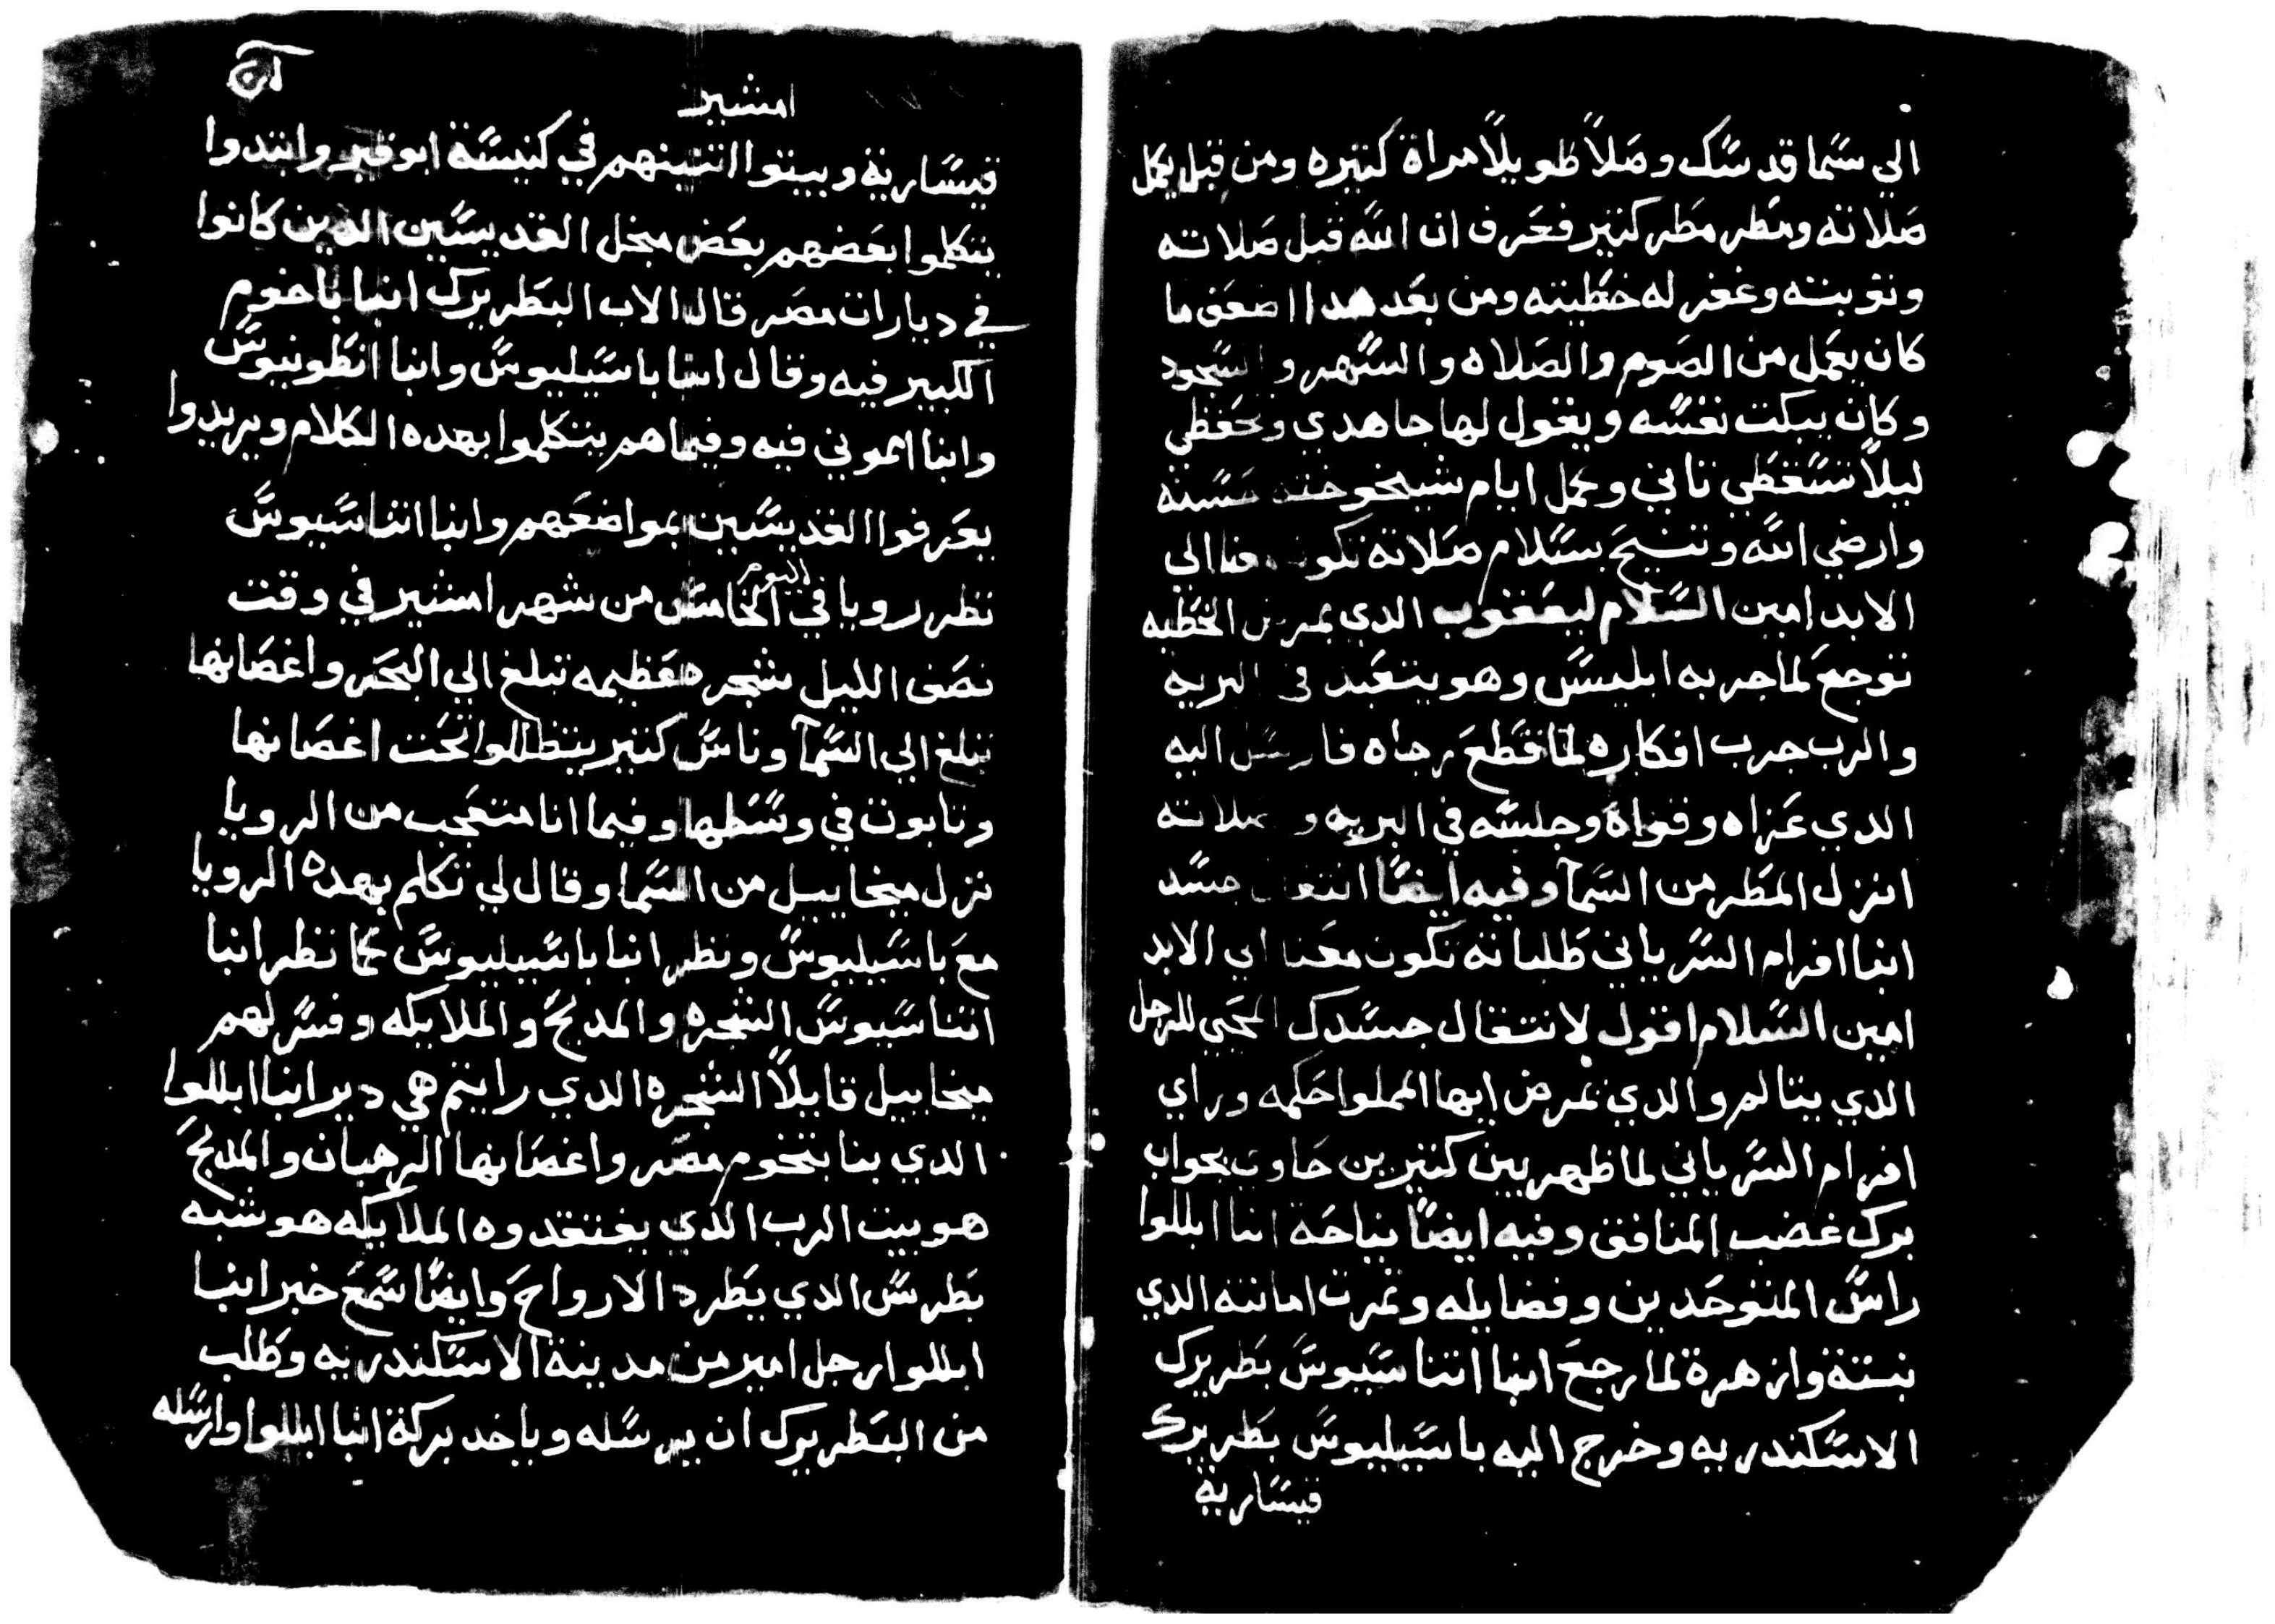 الي سما قدسك وصلا طويلا مراة كتيره ومن قبل يكمل
صلاته ومطر مطر كتير فعرف ان الله قبل صلاته
وتوبته وغفر له خطيته ومن بعد هدا اضعف ما
كان يعمل من الصوم والصلاه والسهر والسجود
وكان يبكت نفسه ويقول لها جاهدي وتحفظي
ليلا تسقطي تاني وكمل ايام شيخوخته حسنه
وارضي الله وتنيح بسلام صلاته تكون معنا الي
الابد امين السلام ليعقوب الدي بمرض الخطيه
توجع لما جربه ابليس وهو يتعبد في البريه
والرب جرب افكاره لما قطع رجاه فارسل اليه
الدي عزاه وقواه وجلسه في البريه وصلاته
انزل المطر من السمآ وفيه ايضا انتقال جسد
انبا افرام السرياني طلباته تكون معنا الي الابد
امين السلام اقول لانتقال جسدك المحبي للرجل
الدي يتالم والدي تمرض ايها المملوا حكمه وراي
افرام السرياني لما ظهر بين كتيرين جاوب بجواب
برك غضب المنافق وفيه ايضا نياحة انبا ابللوا
راس المتوحدين وفضايله وتمرت امانته الدي
نبتة وازهرة لما رجع انبا اتناسيوس بطريرك
الاسكندريه وخرج اليه باسيليوس بطريرك
قيسارية
امشير
قيسارية وبيتوا اتنينهم في كنيسة ابو قير وابتدوا
يتكلموا بعضهم بعض مبجل القديسين الدين كانوا
في ديارات مصر قال الاب البطريرك انبا باخوم
الكبير فيه وقال انبا باسيليوس وانبا انطونيوس
وانبا اموني فيه وفيما هم يتكلموا بهده الكلام ويريدوا
يعرفوا القديسين بمواضعهم وانبا اتناسيوس
نظر رويا في اليوم الخامس من شهر امشير في وقت
نصف الليل شجره عظيمه تبلغ الي البحر واغصانها
تبلغ الي السمآ وناس كتير يتظللوا تحت اغصانها
وتابوت في وسطها وفيما انا متعجب من الرويا
نزل ميخاييل من السما وقال لي تكلم بهده الرويا
مع باسيليوس ونظر انبا باسيليوس كما نظر انبا
اتناسيوس الشجره والمدبح والملايكه وفسر لهم
ميخاييل قايلا الشجره الدي رايتم هي دير انبا ابللوا
الدي بنا بتخوم مصر واغصانها الرهبان والمدبح
هو بيت الرب الدي يفتقدوه الملايكه هو شبه
بطرس الدي يطرد الارواح وايضا سمع خبر انبا
ابللوا رجل امير من مدينة الاسكندريه وطلب
من البطريرك ان يرسله وياخد بركة انبا ابللوا وارسله